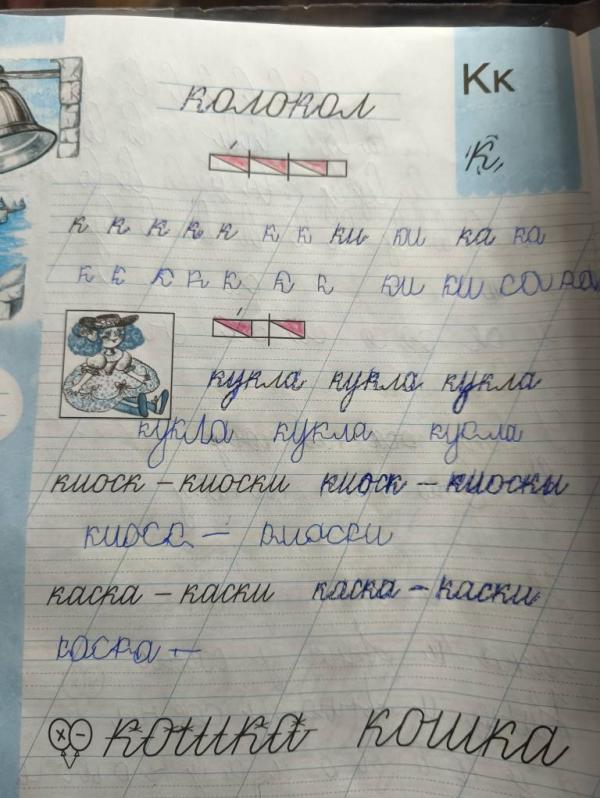 Кк
колокол
к
к к к к к к к ки ки ка ка
к к к к к к к ки ки са ка
кукла кукла кукла
кукла кукла кукла
киоск – киоски киоск – киоски
киоск – киоски
каска – каски каска – каски
каска –
кошка кошка